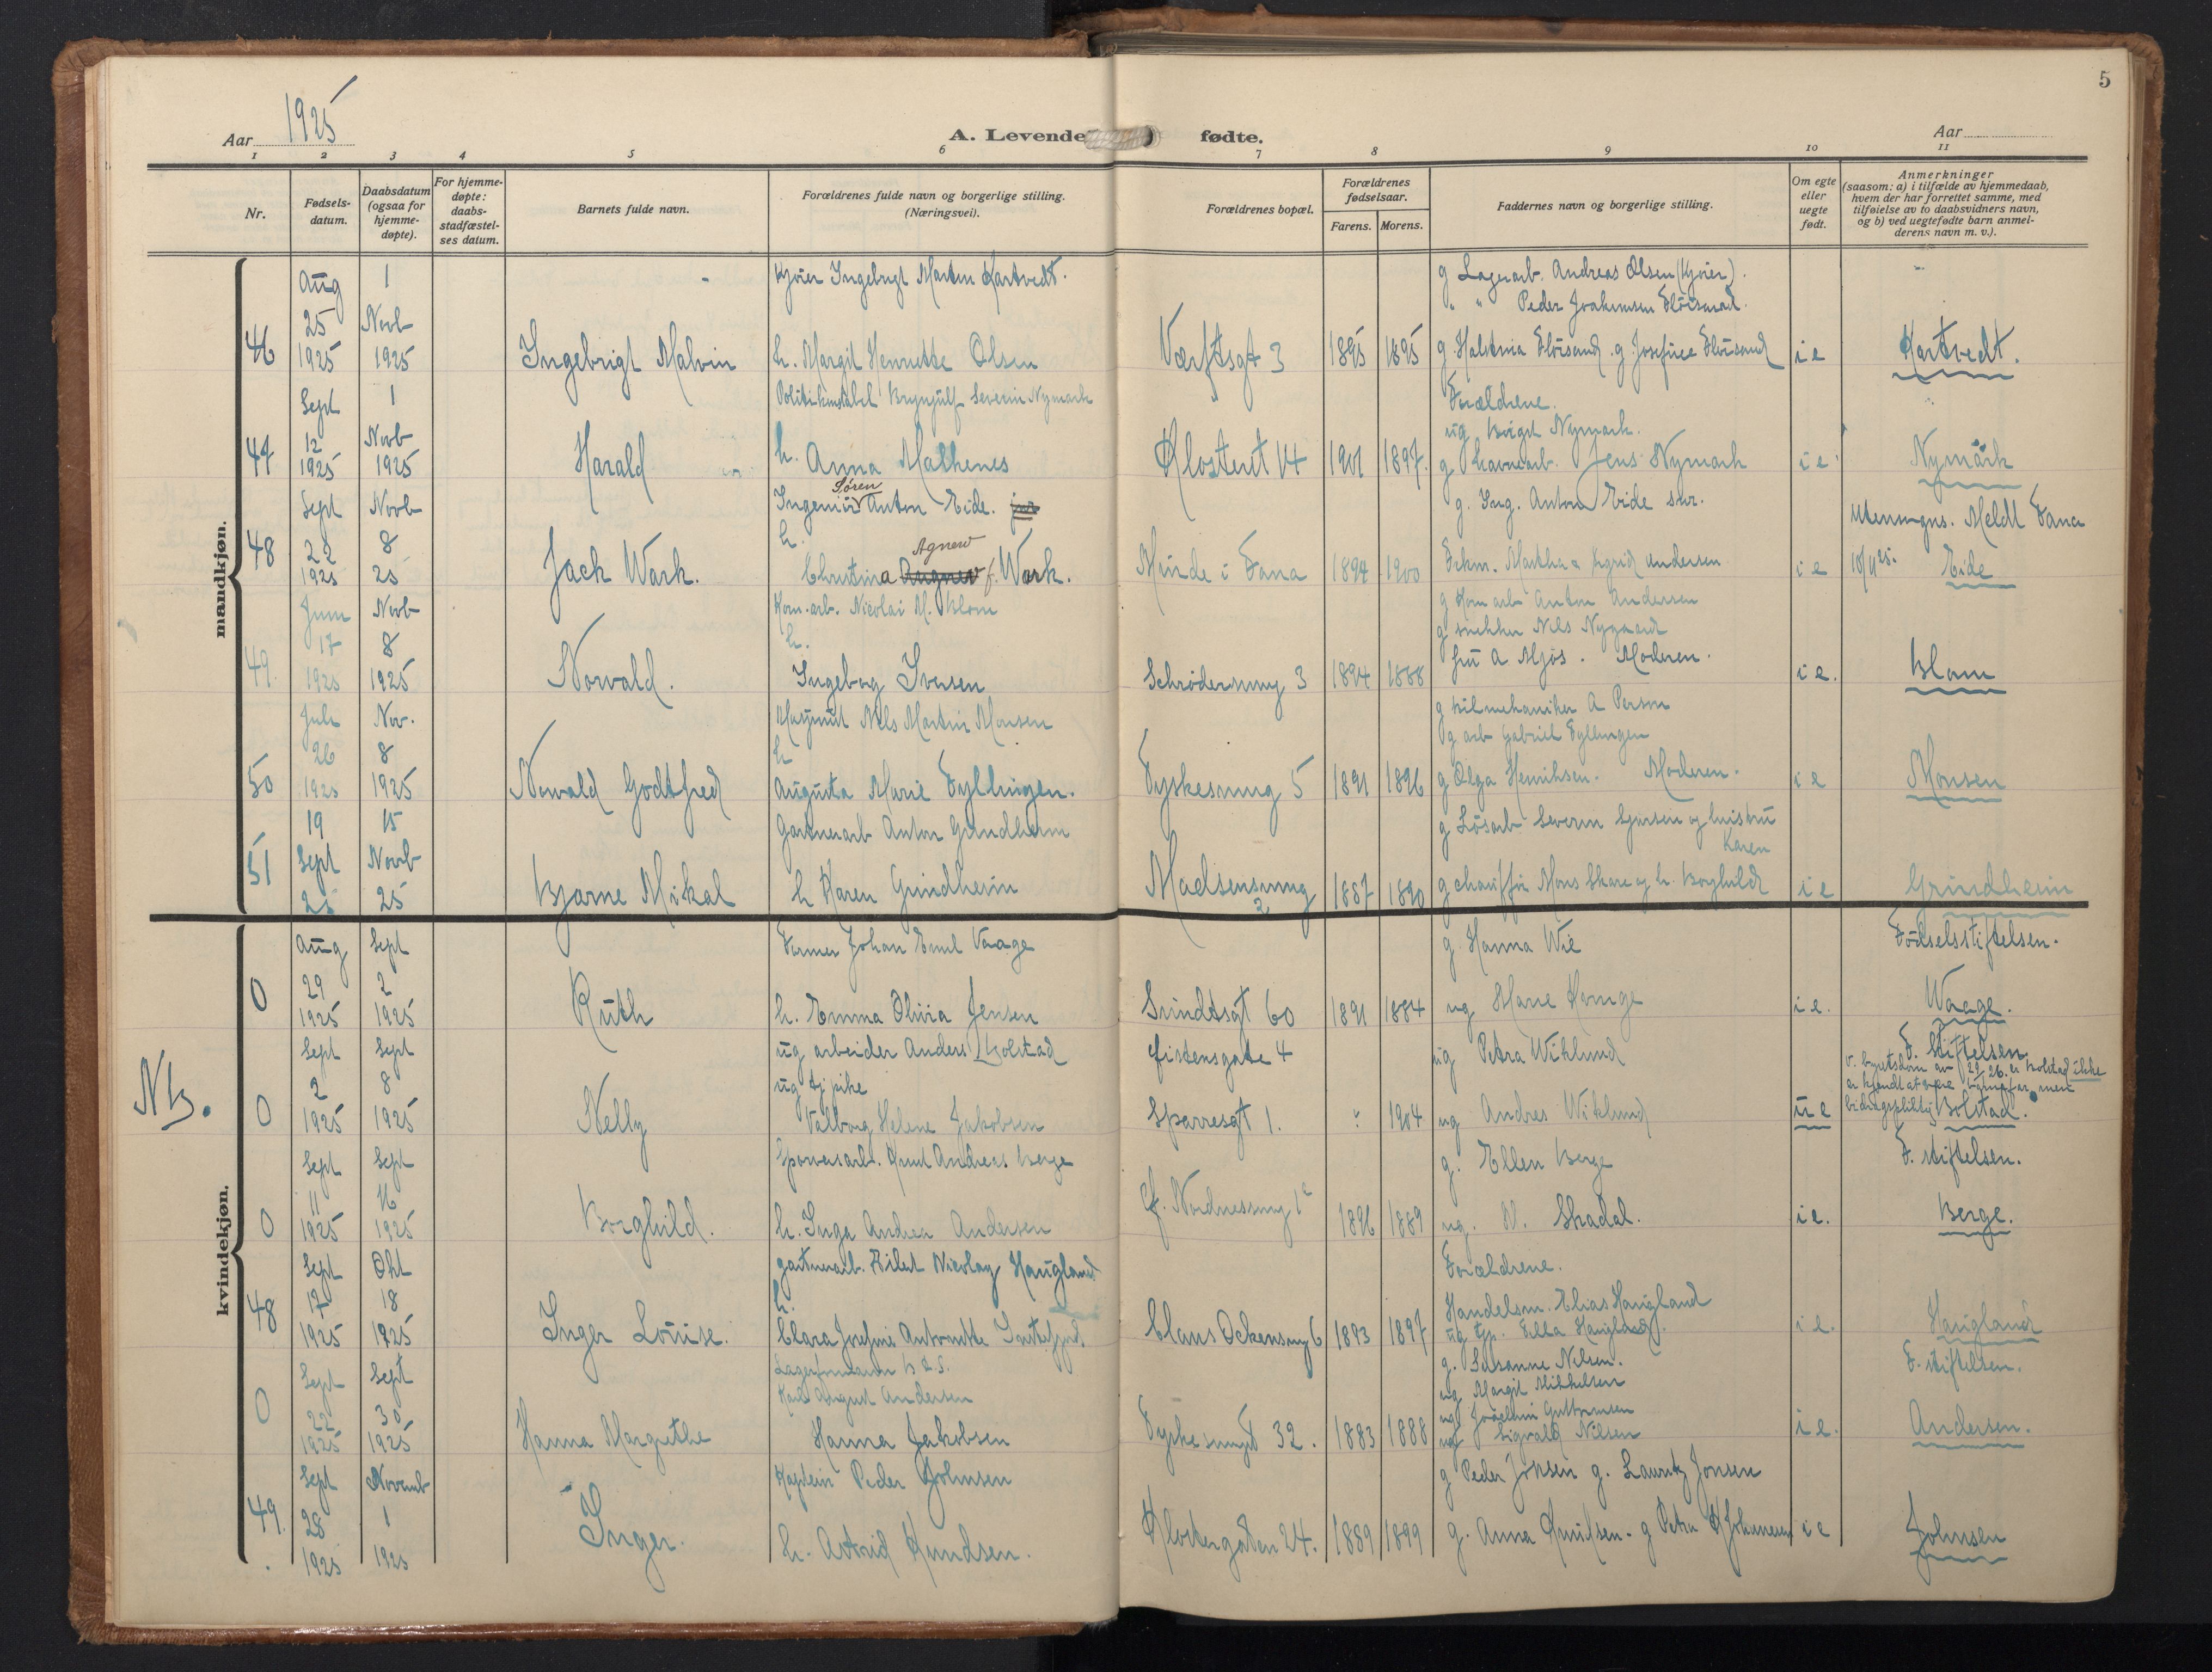 5
Aar 1925
A. Levende fødte.
Aar
1 2 3 4 5 6 7 8 9 10 11
Nr.
Fødsels-
datum.
Daabsdatum
(ogsaa for
hjemme-
døpte).
For hjemme-
døpte:
daabs-
stadfæstel-
ses datum.
Barnets fulde navn.
Forældrenes fulde navn og borgerlige stilling.
(Næringsvei).
Forældrenes bopæl.
Forældrenes
fødselsaar.
Farens. Morens.
Faddernes navn og borgerlige stilling.
Om egte
eller
uegte
født.
Anmerkninger
(saasom: a) i tilfælde av hjemmedaab,
hvem der har forrettet samme, med
tilføielse av to daabsvidners navn,
og b) ved uegtefødte barn anmel-
derens navn m. v.).
mandkjøn.
46
Aug
25
1925
1
Novb
1925
Ingebrigt Malvin
Kjører Ingebrigt Martin Hartvedt.
h. Margit Henriette Olsen
Værftsgt 3
1895 1895
g Lagerarb. Andreas Olsen (Kjører).
" " Peder Joakimsen Flørsand.
g. Halstina Flørsand. g. Josefine Flørsand
i e
Hartvedt.
47
Sept
12
1925
1
Novb
1925
Harald
Politikonstabel Brynjulf Severin Nymark
h. Anna Mathenes
Klosteret 14
1901 1897.
Forældrene.
ug Birgit Nymark.
g Havnearb. Jens Nymark
i e
Nymark
48
Sept
22
1925
Novb
8
25
Jack Wark.
Søren
Ingeniør Anton Eide. jnr
h.
Agnew
Christina Angnew f. Wark.
Minde i Fana
1894 1900
g. Ing. Anton Eide snr.
Frkn. Martha & Sigrid Andersen
i e
Utensogns. Meldt Fana
10/11 25.
Eide
49.
Juni
17
1925
Novb
8
1925
Norvald.
Kom. arb. Nicolai M. Blom
h.
Ingeborg Iversen
Schrødersmug 3
1894 1888
g Kom arb Anton Andersen
g snekker Nils Nygaard
fru A Mjøs. Moderen.
i e.
Blom
50
Juli
26
1925
Nov.
8
1925
Norvald Godtfred
Nils Martin Monsen
h
Augusta Marie Fyllingen.
Tyskesmug 5
1891 1896
g Bilmekaniker A Person
g arb Gabriel Fyllingen
g Olga Henriksen. Moderen.
i e
Monsen
51
19
Sept
25
15
Novb
25
Bjarne Mikal
Gartnerarb Anton Grindheim
h Karen Grindheim
Madsensmug
2
1887 1890
g Løsarb Severin Sjursen og hustru
Karen
g chauffør Mons Skare og h. Borghild
i e
Grindheim
kvindekjøn.
0
Aug
29
1925
Sept
2
1925
Ruth
Farmer Johan Emil Vaage
h. Emma Olivia Jensen
Sundtsgt 60
1891 1884
g. Hanna Wie
ug Marie Hauge
i e.
Fødselsstiftelsen.
Waage.
NB.
0
Sept
2
1925
Sept
8
1925
Nelly
ug arbeider Anders Bolstad
ug tjpike
Valborg Helene Jakobsen
Sparresgt 1.
" 1904
ug Petra Wiklund
ug Andres Wiklund
u e
F. Stiftelsen
Bolstad.
0
Sept
11
1925
Sept
16
1925
Borghild.
Sporveisarb. Knut Andreas Berge
h. Inga Andrea Andersen
1896 1889
g. Ellen Berge
ug. N. Skadal.
i e.
F. stiftelsen.
Berge.
48
Sept
17
1925
Okt
18
1925
Inger Louise.
gartnerarb. Eilert Nicolay Haugland
h.
Clara Josefine Antonette
Claus Ockensmug 6
1893 1897
Forældrene.
Handelsm. Elias Haugland
ug tjp. Ella Haugland.
i e.
Haugland
0
Sept
22
1925
Sept
30
1925
Hanna Margrethe
Lagerformann
Karl August Andersen
Hanna Jakobsen
32.
1883 1888
g. Susanne Nilsen.
ug Margit Mikkelsen
ug Guttormsen
ug Sigvald Nilsen
i e.
F. stiftelsen.
Andersen.
49.
Sept
28
1925
Novemb
1
1925
Inger.
Kaptein Peder Johnsen
h. Astrid Knudsen.
Klostergaten 24.
1889 1899
g Peder Jonsen g. Lauritz Jonsen
g. Anna Knudsen. g Petra K Johannesen
i e
Johnsen